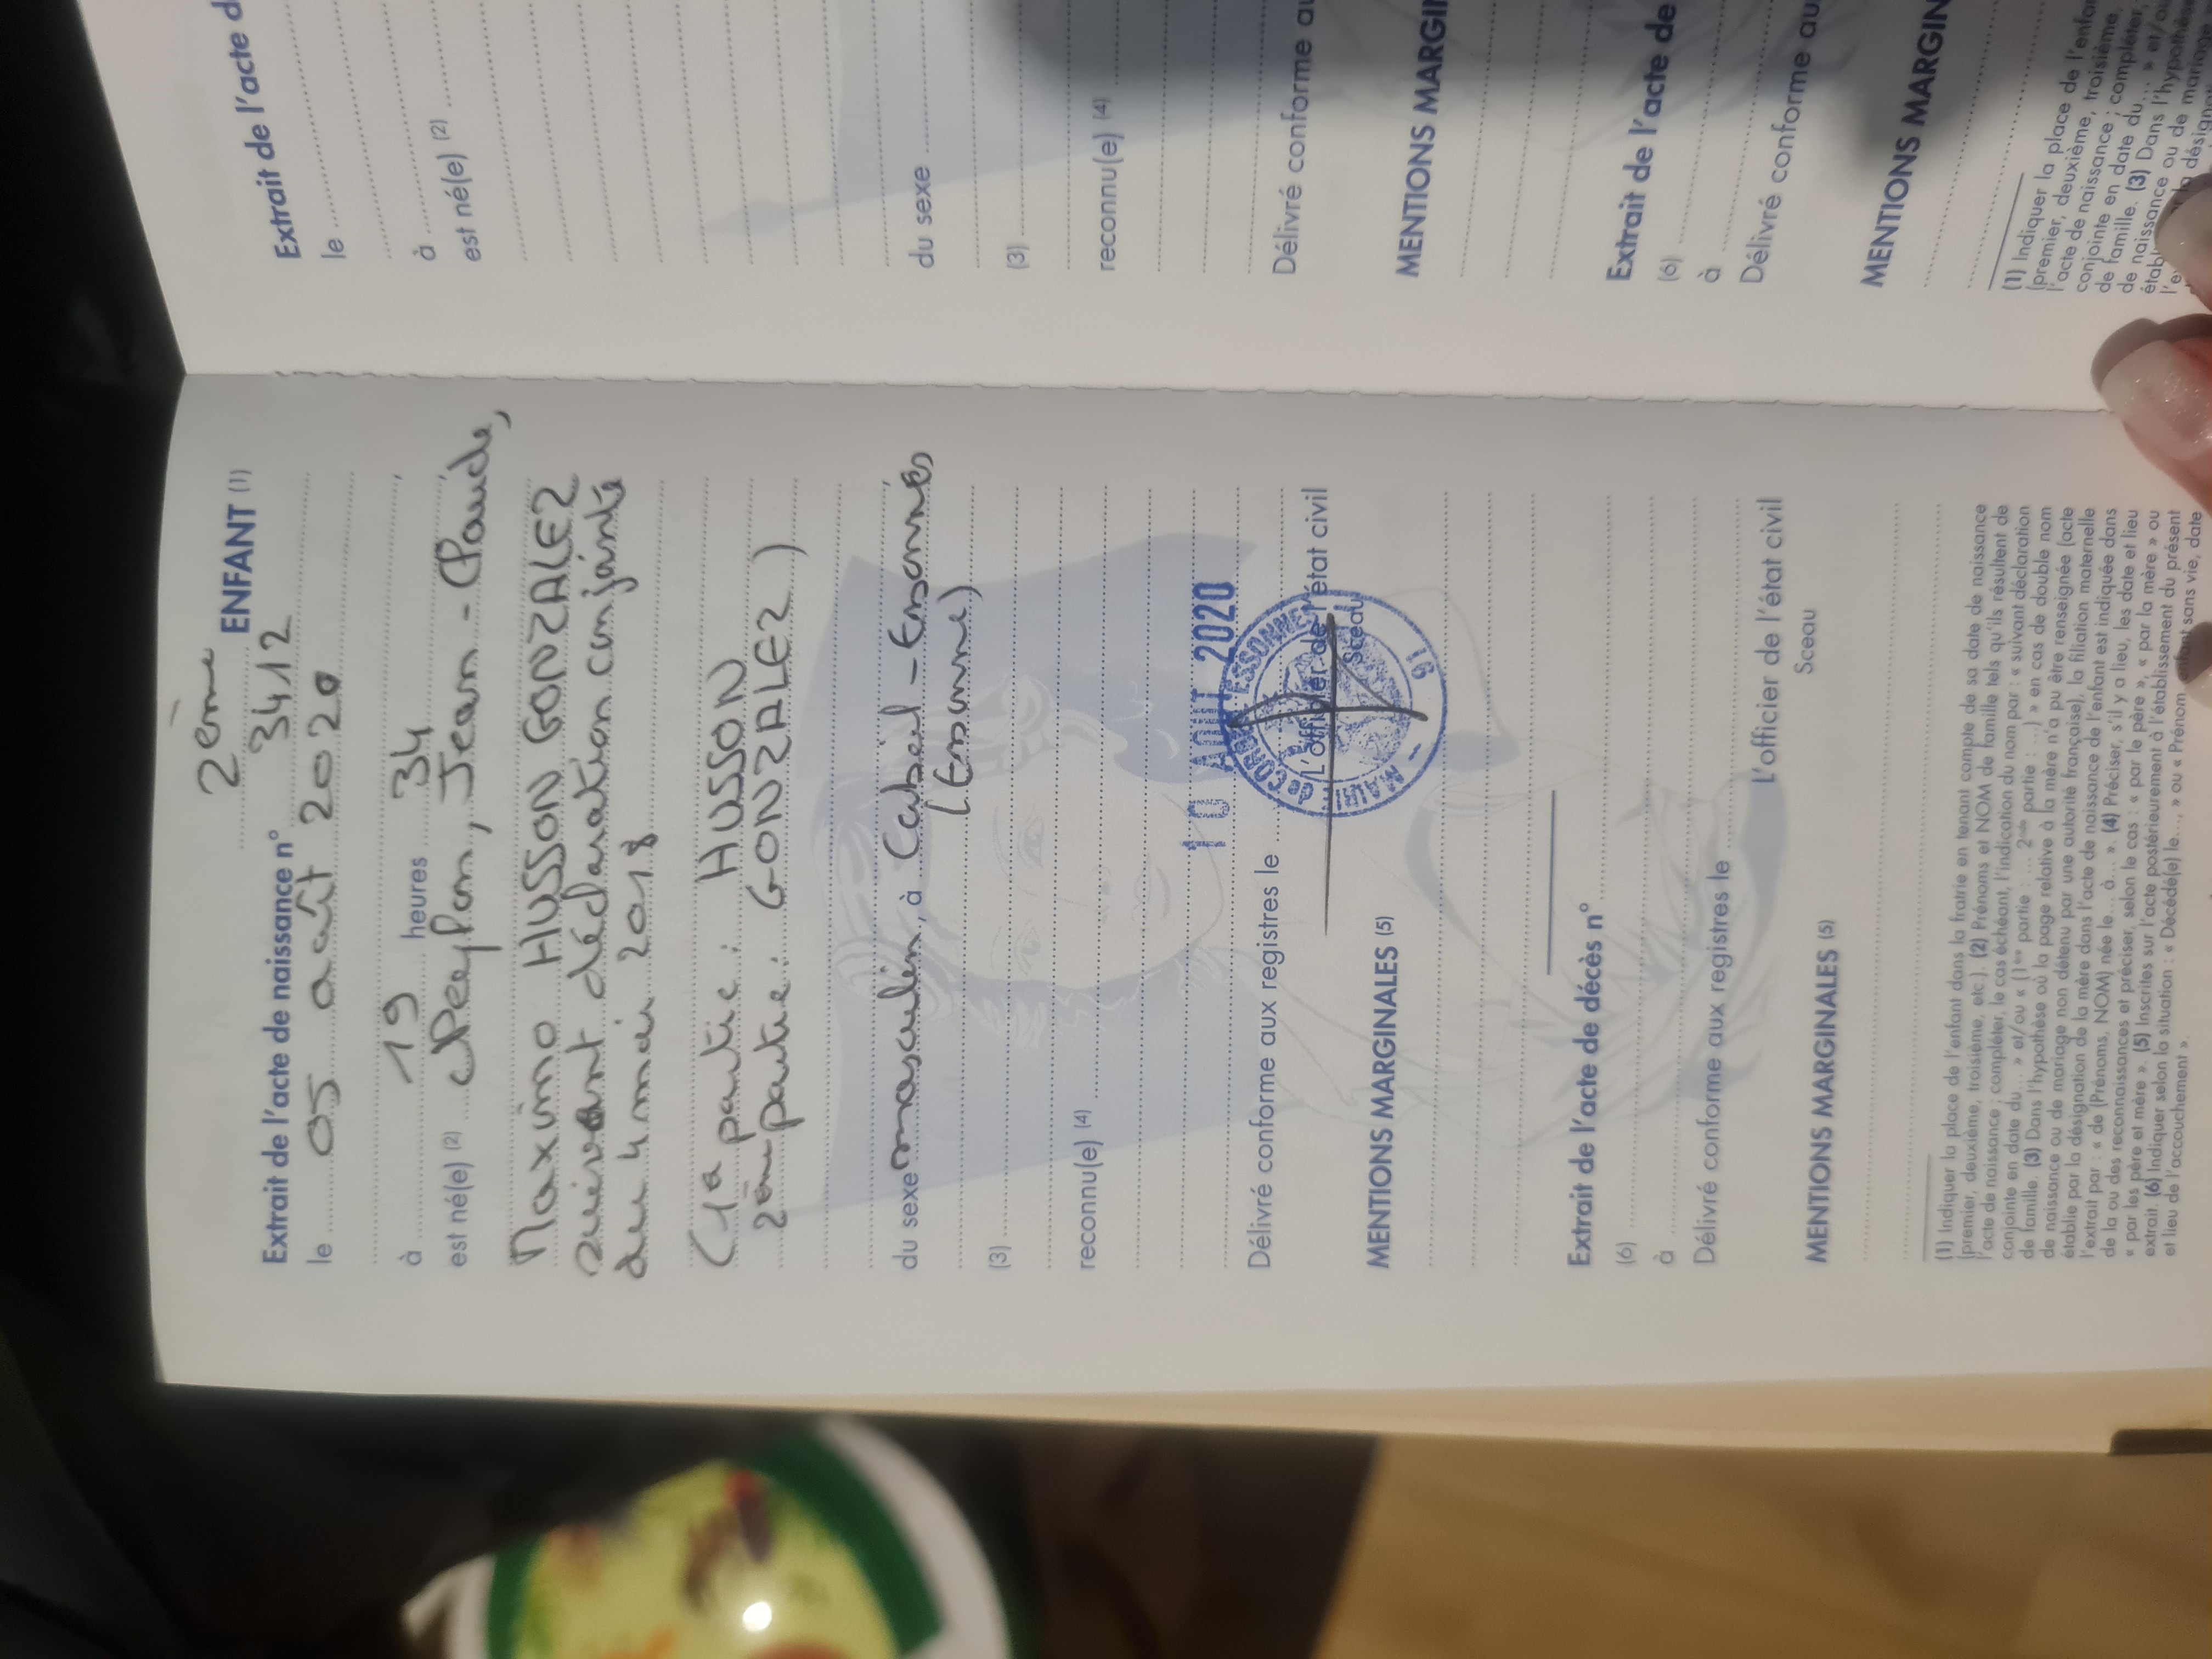 2ème ENFANT (1)
Extrait de l'acte de naissance n° 3412
le 05 août 2020
à 19 heures 34
est né(e) (2) Peyhon, Jean-Claude,
Maximo HUSSON GONZALEZ
suivant déclaration conjointe
du 4 mai 2018
(1a partie : HUSSON
2ème partie : GONZALEZ)
du sexe masculin, à Corbeil-Essonnes
(Essonne)
(3)
reconnu(e) (4)
10 AOUT 2020
Délivré conforme aux registres le
L'officier de l'état civil
Sceau
MAIRIE de CORBEIL ESSONNES
- 91
MENTIONS MARGINALES (5)
Extrait de l'acte de décès n°
(6)
à
Délivré conforme aux registres le
L'officier de l'état civil
Sceau
MENTIONS MARGINALES (5)
(1) Indiquer la place de l'enfant dans la fratrie en tenant compte de sa date de naissance
(premier, deuxième, troisième, etc.). (2) Prénoms et NOM de famille tels qu'ils résultent de
l'acte de naissance ; compléter, le cas échéant, l'indication du nom par : « suivant déclaration
conjointe en date du... » et/ou « (1ère partie : ... 2nde partie : ...) » en cas de double nom
de famille. (3) Dans l'hypothèse où la page relative à la mère n'a pu être renseignée (acte
de naissance ou de mariage non détenu par une autorité française), la filiation maternelle
établie par la désignation de la mère dans l'acte de naissance de l'enfant est indiquée dans
l'extrait par : « de (Prénoms, NOM) née le... à... ». (4) Préciser, s'il y a lieu, les date et lieu
de la ou des reconnaissances et préciser, selon le cas : « par le père », « par la mère » ou
« par les père et mère ». (5) Inscrites sur l'acte postérieurement à l'établissement du présent
extrait. (6) Indiquer selon la situation : « Décédé(e) le..., » ou « Prénom enfant sans vie, date
et lieu de l'accouchement ».
Extrait de l'acte d
le
à
est né(e) (2)
du sexe
(3)
reconnu(e) (4)
Délivré conforme au
MENTIONS MARGI
Extrait de l'acte de
(6)
à
Délivré conforme au
MENTIONS MARGIN
(1) Indiquer la place de l'enfan
(premier, deuxième, troisième,
l'acte de naissance ; compléter,
conjointe en date du... » et/ou
de famille. (3) Dans l'hypothèse
de naissance ou de mariage
établ
l'ex